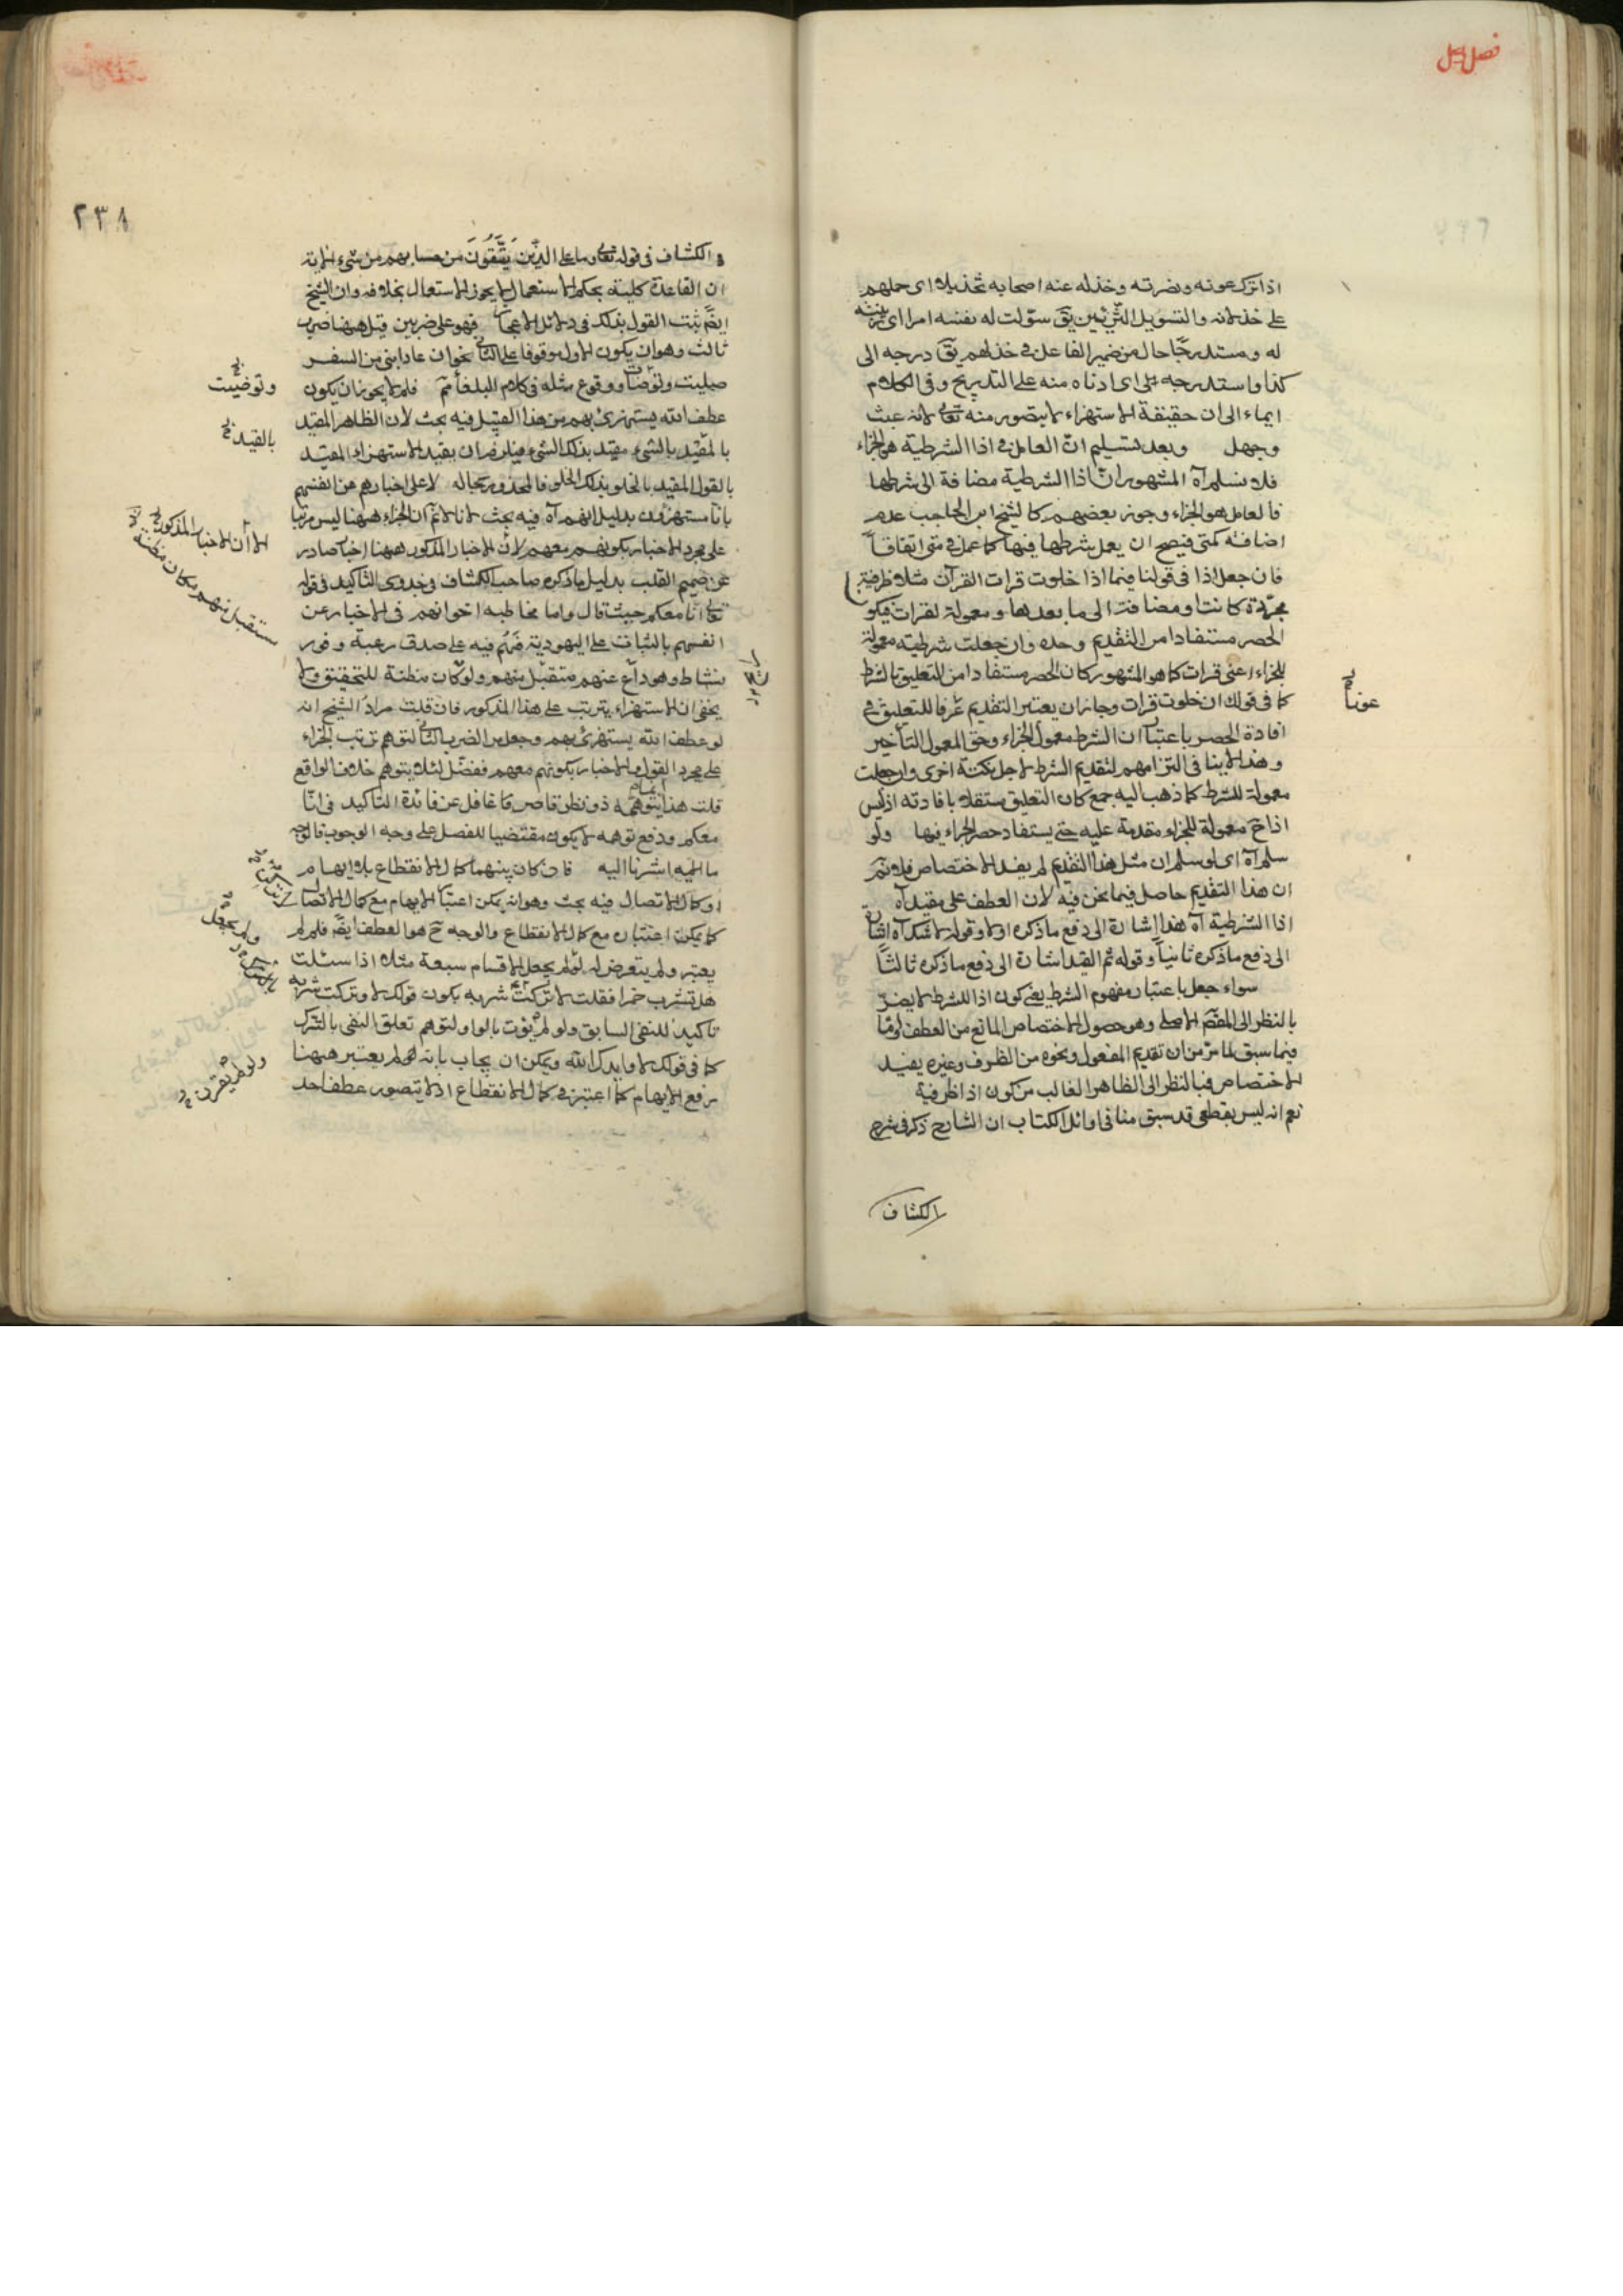 فصل وصل
اذا ترك عونه ونصرته وخذله عنه اصحابه تخذيلا اى حملهم
على خذلانه والتسويل التزيين يق سوّلت له نفسه امرا اى زينته
له ومستدرجا حال من ضمير الفاعل فى خذلهم يق درجه الى
كذا واستدرجه اى ادناه منه على التدريج وفى الكلام
ايماء الى ان حقيقة الاستهزاء لا يتصور منه تعالى لانه عبث
وجهل وبعد تسليم انّ العامل فى اذا الشرطية هو الجزاء
فلا نسلم آه المشهور انّ اذا الشرطية مضافة الى شرطها
فالعامل هو الجزاء وجوز بعضهم كالشيخ ابن الحاجب عدم
اضافته كمتى فيصح ان يعمل شرطها فيها كما عمل فى متى اتفاقاً
فان جعل اذا فى قولنا فيما اذا خلوت قرات القرآن مثلا ظرفية
مجرّدة كانت او مضافة الى ما بعدها ومعمولة لقرات فيكو
الحصر مستفادا من التقديم وحده وان جعلت شرطية معمولة
للجزاء اعنى قرات كما هو المشهور كان الحصر مستفادا من التعليق بالشرط
كما فى قولك ان خلوت قرات وجاز ان يعتبر التقديم عرفا للتعليق فى
عونا
افادة الحصر باعتبار ان الشرط معمول الجزاء وحق المعمول التأخير
وهذا لا ينافى التزامهم لتقديم الشرط لاجل نكتة اخرى وان جعلت
معمولة للشرط كما ذهب اليه جمع كان التعليق مستقلا بافادته اذ ليس
اذا ح معمولة للجزاء مقدمة عليه حتى يستفاد حصر الجزاء فيها ولو
سلم آه اى لو سلم ان مثل هذا التقديم لم يفد الاختصاص فلا نم
ان هذا التقديم حاصل فيما نحن فيه لان العطف على مقيد آه
اذا الشرطية آه هذا اشارة الى دفع ما ذكره اولا وقوله لا شك آه اشارة
الى دفع ما ذكره ثانياً وقوله ثم القيد اشارة الى دفع ما ذكره ثالثاً
سواء جعل باعتبار مفهوم الشرط يعنى كون اذا للشرط لا يضرّ
بالنظر الى المقصد الاصلى وهو حصول الاختصاص المانع من العطف
فيما سبق لما مرّ من ان تقديم المفعول ونحوه من الظرف وغيره يفيد
الاختصاص فبالنظر الى الظاهر الغالب من كون اذا ظرفية
نعم انه ليس بقطعى قد سبق منا فى اوائل الكتاب ان الشارح ذكر فى شرح
الكشاف
٢٣٨
الكشاف فى قوله تعالى وما على الذين يتقون من حسابهم من شىء الاية
ان القاعدة كلية بحكم الاستعمال لا يجوز الاستعمال بخلافه وان الشيخ
ايضً يثبت القول بذلك فى دلائل الاعجاز فهو على ضربين قيل ههنا ضرب
ثالث وهو ان يكون الاول موقوفا على الثانى نحو ان عاد ابنى من السفر
صليت وتوضأت ووقوع مثله فى كلام البلغاء ثم فلم لا يجوز ان يكون
وتوضيت
عطف الله يستهزئ بهم من هذا القبيل فيه بحث لان الظاهر المقيد
بالقيد
بالمقيد بالشىء مقيد بذلك الشىء فيلزم ان يقيد الاستهزاء المقيد
بالقول المقيد بالخلو بذلك الخلو فالمحذور بحاله لا على اخبارهم عن انفسهم
بانا مستهزؤن بدليل انهم آه فيه بحث لانا لا نم ان الجزاء ههنا ليس مرتبا
الا ان الاخبار المذكور
على مجرد الاخبار بكونهم معهم لان الاخبار المذكور ههنا اخبار صادر
مستقبل منهم مكان مظنة
عن صميم القلب بدليل ما ذكره صاحب الكشاف فى جدوى التاكيد فى قوله
تعالى انا معكم حيث قال واما مخاطبة اخوانهم فى الاخبار عن
انفسهم بالثبات على اليهودية فهم فيه على صدق رغبة ووفور
نشاط وهو رائج عنهم متقبل منهم ولو كان مظنة للتحقيق ولا
يخفى ان الاستهزاء يترتب على هذا المذكور فان قلت مراد الشيخ انه
لو عطف الله يستهزئ بهم وجعل من الضرب الثانى لتوهم ترتب الجزاء
على مجرد القول والاخبار بكونهم معهم ففصّل لئلا يتوهم خلاف الواقع
قلت هذا يتوهمه ذو نظر قاصر غافل عن فائدة التاكيد فى انّا
معكم ودفع توهمه لا يكون مقتضيا للفصل على وجه الوجوب فالوجه
ما اشرنا اليه فان كان بينهما كمال الانقطاع بلا ايهام
او كمال الاتصال فيه بحث وهو انه يمكن اعتبار الايهام مع كمال الاتصال
كما يمكن اعتباره مع كمال الانقطاع والوجه ح هو العطف ايضً فلم لم
ولم يجعل
يعتبر ولم يتعرض له ولم يجعل الاقسام سبعة مثلا اذا سئلت
هل تشرب خمرا فقلت لا تركت شربه يكون قولك لا وتركت شربه
تاكيدا للنفى السابق ولو لم يؤت بالواو لتوهم تعلق النفى بالترك
كما فى قولك لا وايدك الله ويمكن ان يجاب بانه لم يعتبر ههنا
ولو لم يقترن
رفع الايهام كما اعتبر فى كمال الانقطاع اذ لا يتصور عطف احد